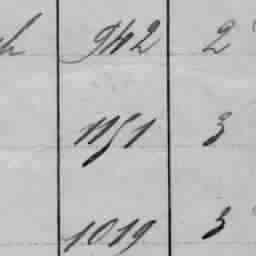 942 2
1151 3
1019 3